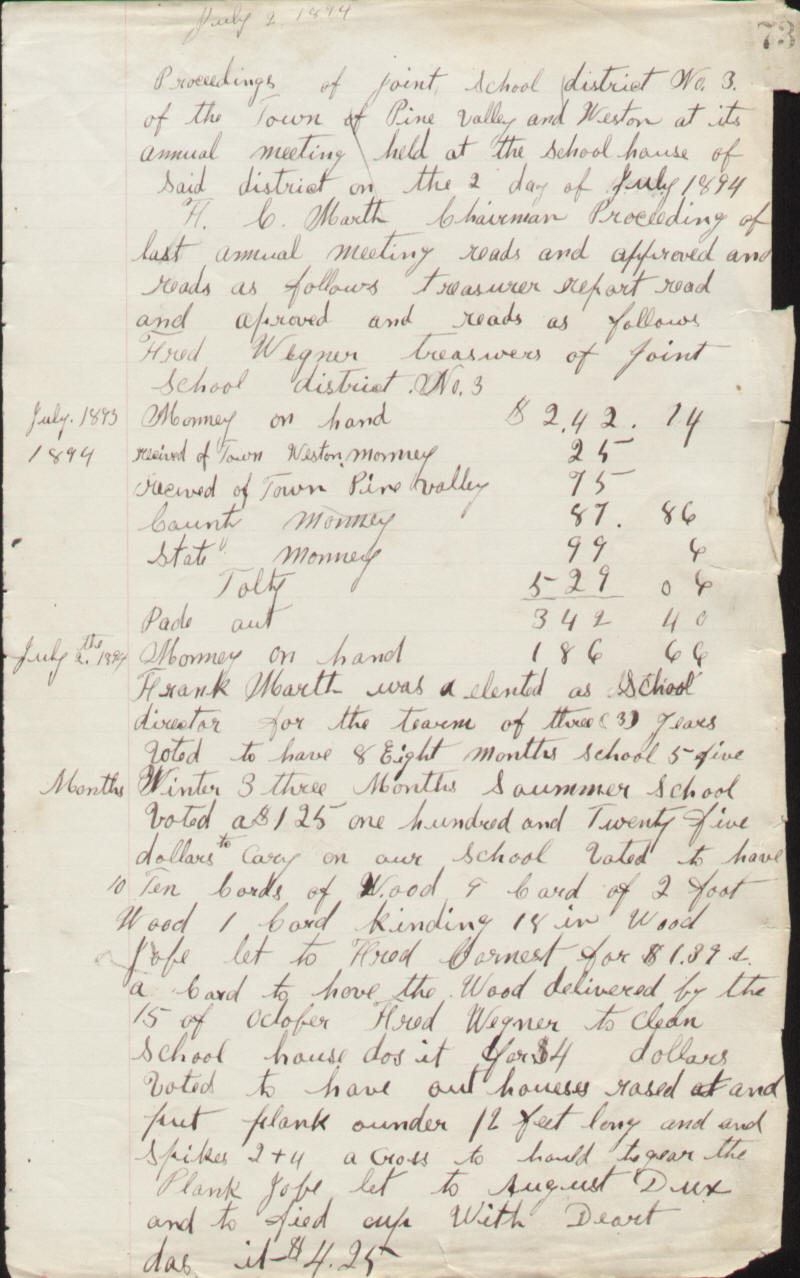 July 2 1894
73
Proceedings of joint school district No. 3.
of the Town of Pine Valley and Weston at its
annual meeting held at the school house of
said district on the 2 day of July 1894
H. C. Marth Chairman Proceeding of
last annual meeting reads and approved and
reads as follows treasurer report read
and aproved and reads as follows
Fred Wegner treaswers of joint
school district. No. 3
July. 1893 Monney on hand $ 242. 14
1894 received of Town Weston monney 25
recived of Town Pine valley 75
Count monney 87. 86
State monney 99 6
Tolty 529 06
Pade aut 342 40
July 2.the 1894 Monney on hand 186 66
Frank Marth was a elented as School
director for the tearm of three (3) years
Voted to have 8 Eight months school 5 five
Months Winter 3 three Months Soummer School
Voted a $125 one hundred and Twenty five
dollars to cary on our school Voted to have
10 Ten Cords of Wood 9 Card of 2 foot
Wood 1 Cord kinding 18 in Wood
Jobe let to Fred Carnest for $1.39 c.
a Card to hove the Wood delivered by the
15 of October Fred Wegner to clean
School house dos it for $4 dollars
Voted to have out houeses rased at and
put plank ounder 12 feet long and and
spikes 2+4 a cross to hould togear the
Plank Jobe let to August Dux
and to fied cup With Deart
das it $4.25